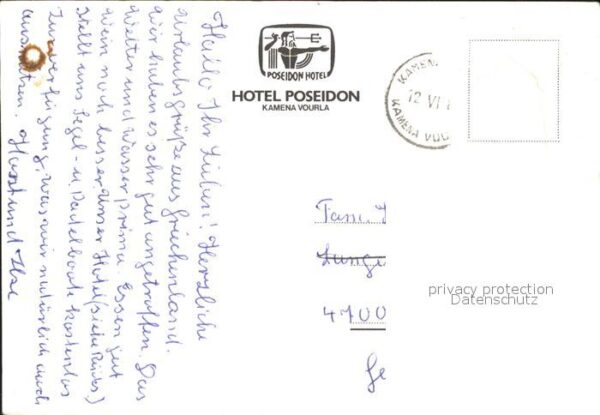 Hallo Ihr Lieben! Herzliche
Urlaubsgrüße aus Griechenland.
Wir haben es sehr gut angetroffen. Das
Wetter und Wasser prima. Essen gut
wenn noch besser, unser Hotel (siehe Rücks.)
stellt uns Segel- u. Paddelboote kostenlos
zur Verfügung, was wir natürlich auch
ausnützen. Horst und Ilse
POSEIDON HOTEL
HOTEL POSEIDON
KAMENA VOURLA
KAMENA
12 VI
KAMENA VOU
Fam.
Lunge
4700
Ge
privacy protection
Datenschutz